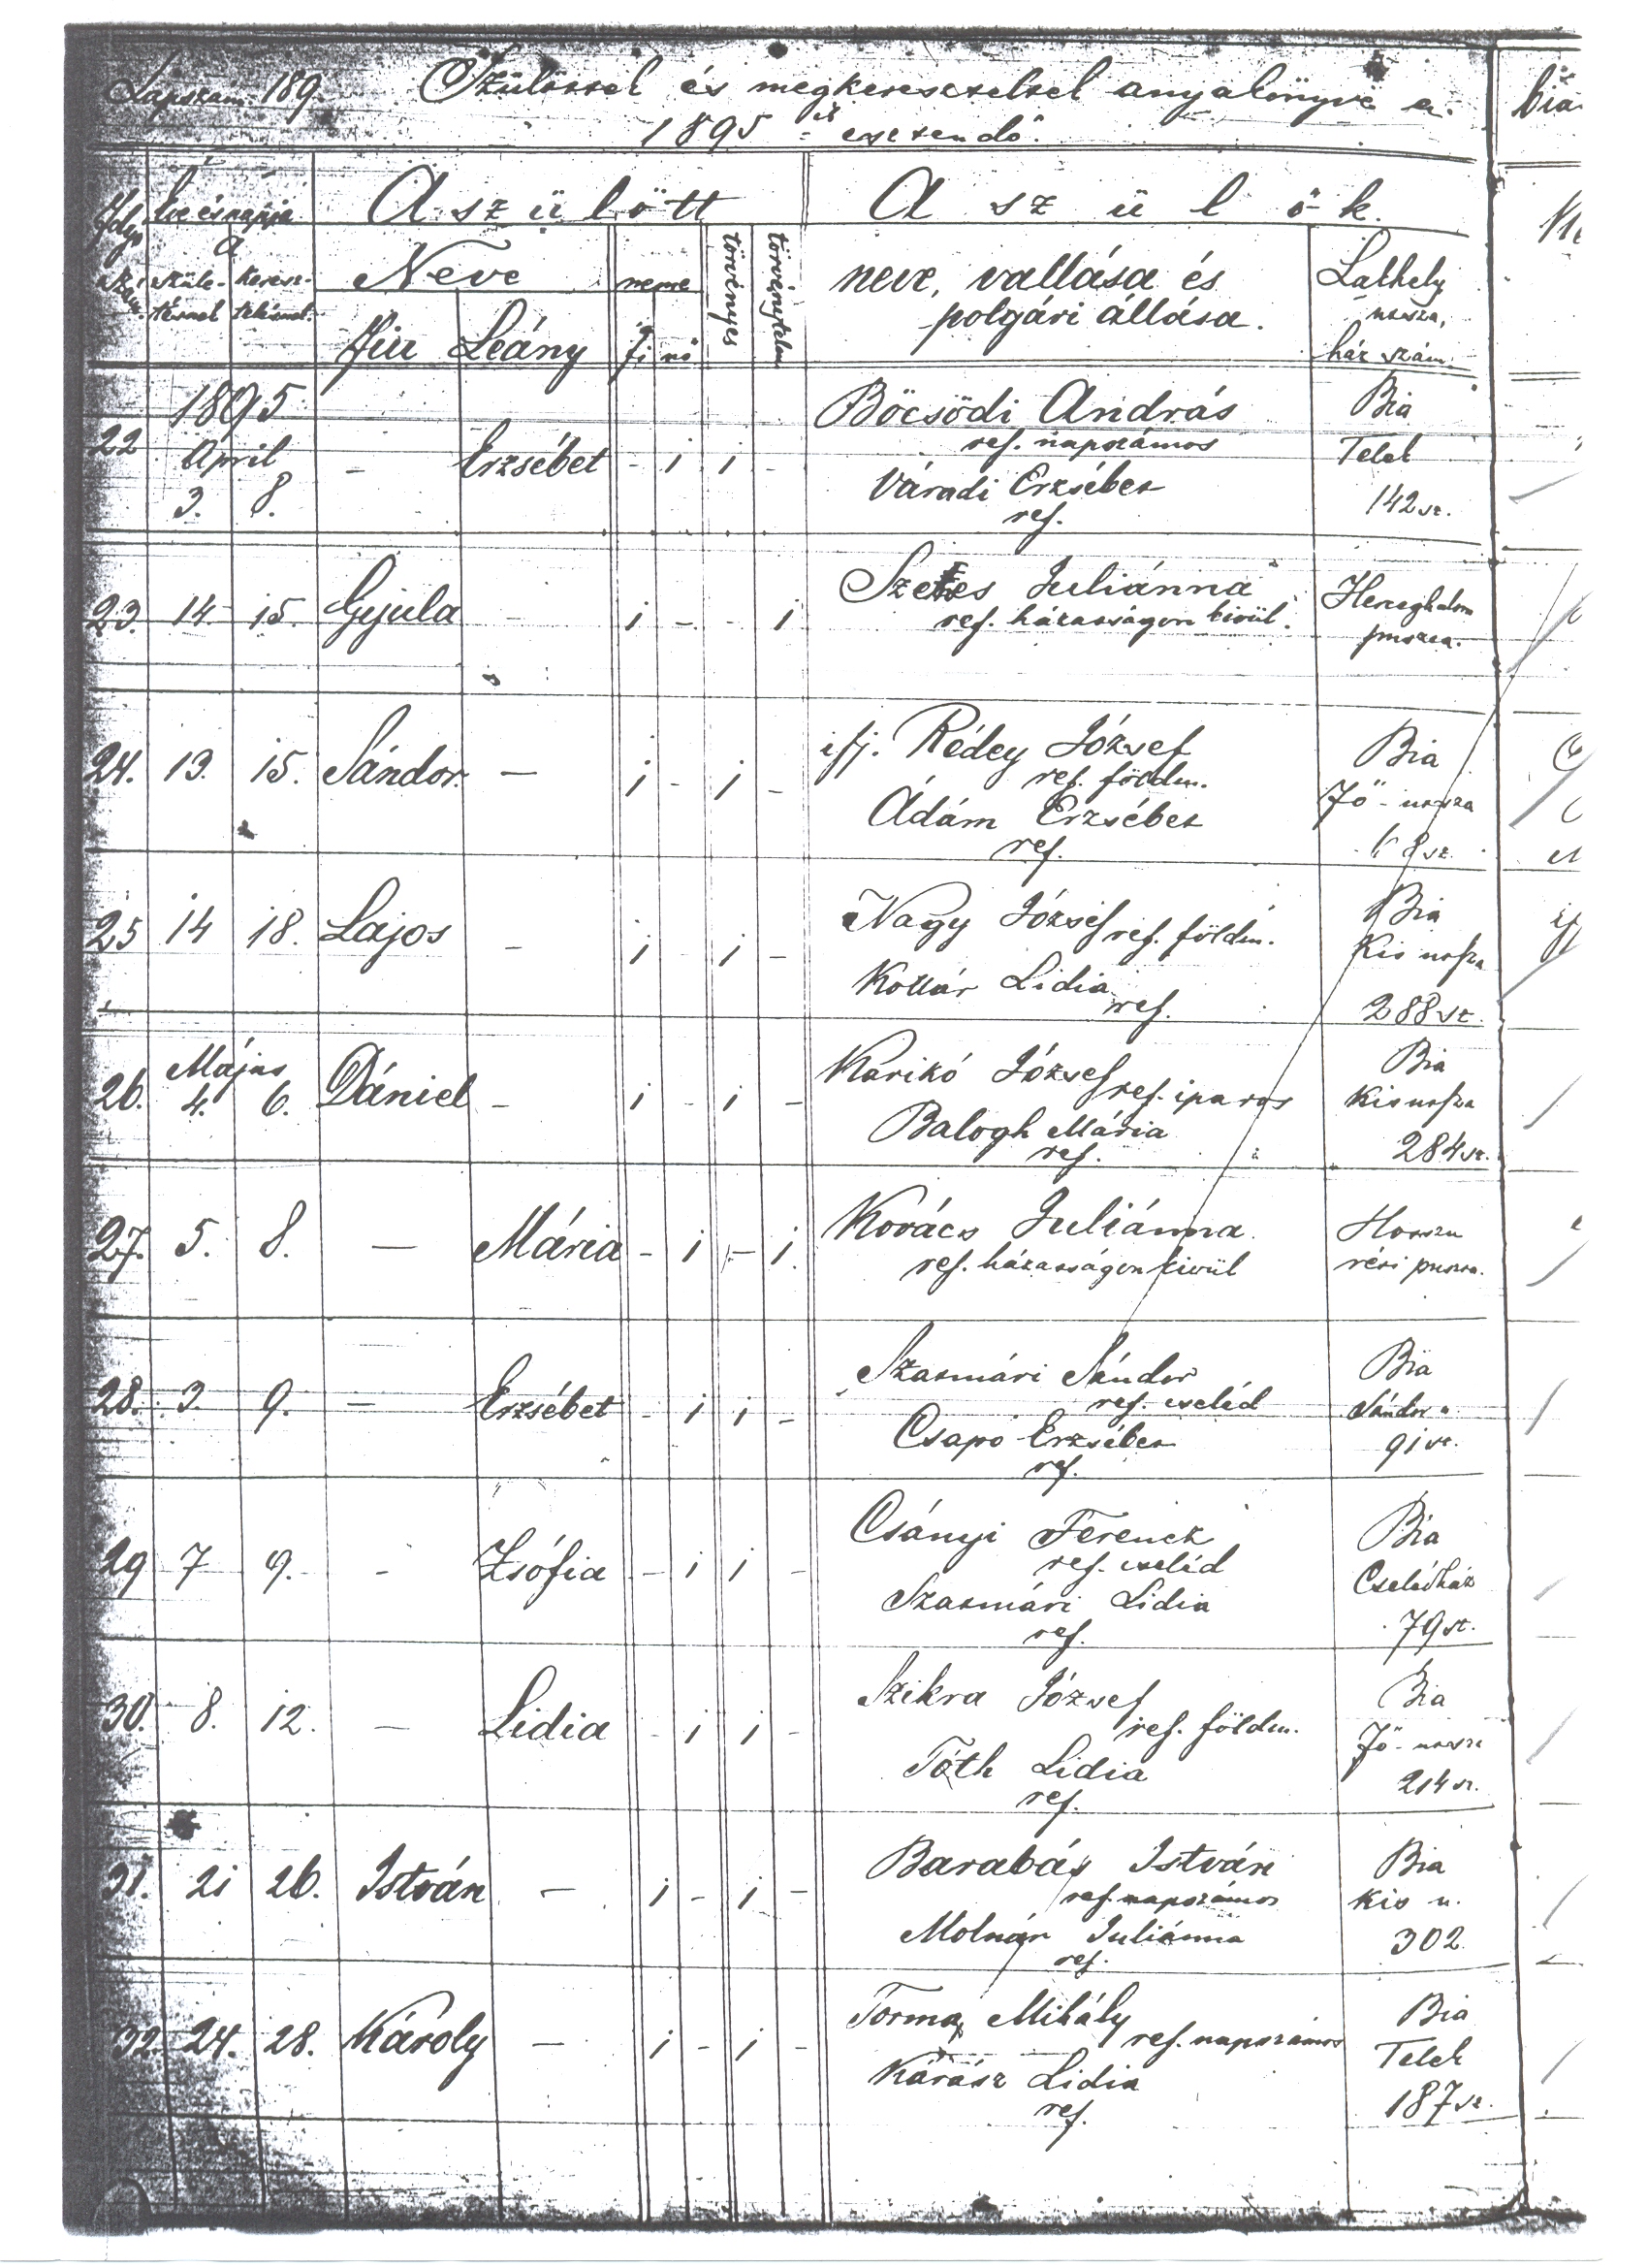 Lapszám 189. Születtek és megkereszteltek anyakönyve a.
1895 ik esztendő.
Folyó szám
Éve és napja
A születtésnek
keresztelésnek
A született
Neve
Fiu
Leány
neme
fi
nő
törvényes
törvénytelen
A szülők
neve, vallása és
polgári állása.
Lakhely
utcza,
ház szám.
1895
22 Ápril 3. 8. - Erzsébet - 1 1 -
Böcsödi András
ref. napszámos
Váradi Erzsébet
ref.
Bia
Telek
142 sz.
23. 14 15. Gyula - 1 - - 1
Juliánna
ref. házasságon kivül.
Herczeghalom
puszta.
24. 13. 15. Sándor. — 1 - 1 -
ifj. Rédey József
ref. földm.
Ádám Erzsébet
ref.
Bia
Fő-utcza
8 sz.
25 14 18. Lajos - 1 1 -
Nagy József ref. földm.
Kollár Lidia
ref.
Bia
Kis utsza
288 sz.
Május
26. 4. 6. Dániel - 1 - 1 -
Karikó József ref. iparos
Balogh Mária
ref.
Bia
Kis utsza
284 sz.
27. 5. 8. — Mária - 1 - 1
Kovács Juliánna
ref. házasságon kivül
Hosszu
réti puszta.
28. 3. 9. — Erzsébet - 1 1 -
Szatmári Sándor
ref. cseléd
Csapó Erzsébet
ref.
Bia
Sándor u.
91 sz.
29 7 9. - Zsófia - 1 1 -
Csányi Ferencz
ref. cseléd
Szatmári Lidia
ref.
Bia
Cselédház
79 sz.
30. 8. 12. — Lidia - 1 1 -
Szikra József
ref. földm.
Tóth Lidia
ref.
Bia
Fő-utcza
214 sz.
31. 21 26. István — 1 - 1 -
Barabás István
ref. napszámos
Molnár Juliánna
ref.
Bia
Kis u.
302
32. 24. 28. Károly — 1 - 1 -
Torma Mihály
ref. napszámos
Kárász Lidia
ref.
Bia
Telek
187 sz.